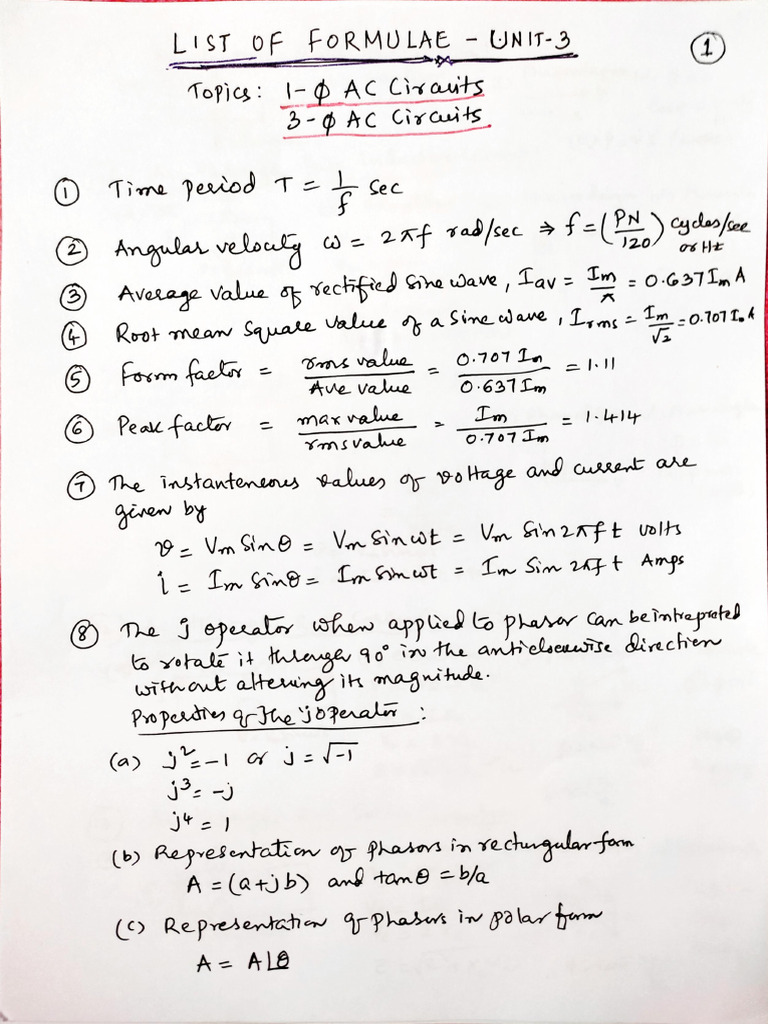 LIST OF FORMULAE - UNIT-3
1
Topics: 1-ϕ AC Circuits
3-ϕ AC Circuits
① Time period T = 1/f sec
② Angular velocity ω = 2πf rad/sec ⇒ f = (PN/120) cycles/sec or Hz
③ Average value of rectified sine wave, Iav = Im/π = 0.637 Im A
④ Root mean square value of a sine wave, Irms = Im/√2 = 0.707 Im A
⑤ Form factor = rms value/Ave value = 0.707 Im/0.637 Im = 1.11
⑥ Peak factor = max value/rms value = Im/0.707 Im = 1.414
⑦ The instanteneous values of voltage and current are
given by
v = Vm Sinθ = Vm Sin ωt = Vm Sin 2πft volts
i = Im Sinθ = Im Sin ωt = Im Sin 2πft Amps
⑧ The j operator when applied to phasor can be intreprated
to rotate it through 90° in the anticlockwise direction
without altering its magnitude.
Properties of the 'j' operator :
(a) j² = -1 or j = √-1
j³ = -j
j⁴ = 1
(b) Representation of phasors in rectungular form
A = (a+jb) and tanθ = b/a
(c) Representation of phasors in polar form
A = A∠θ